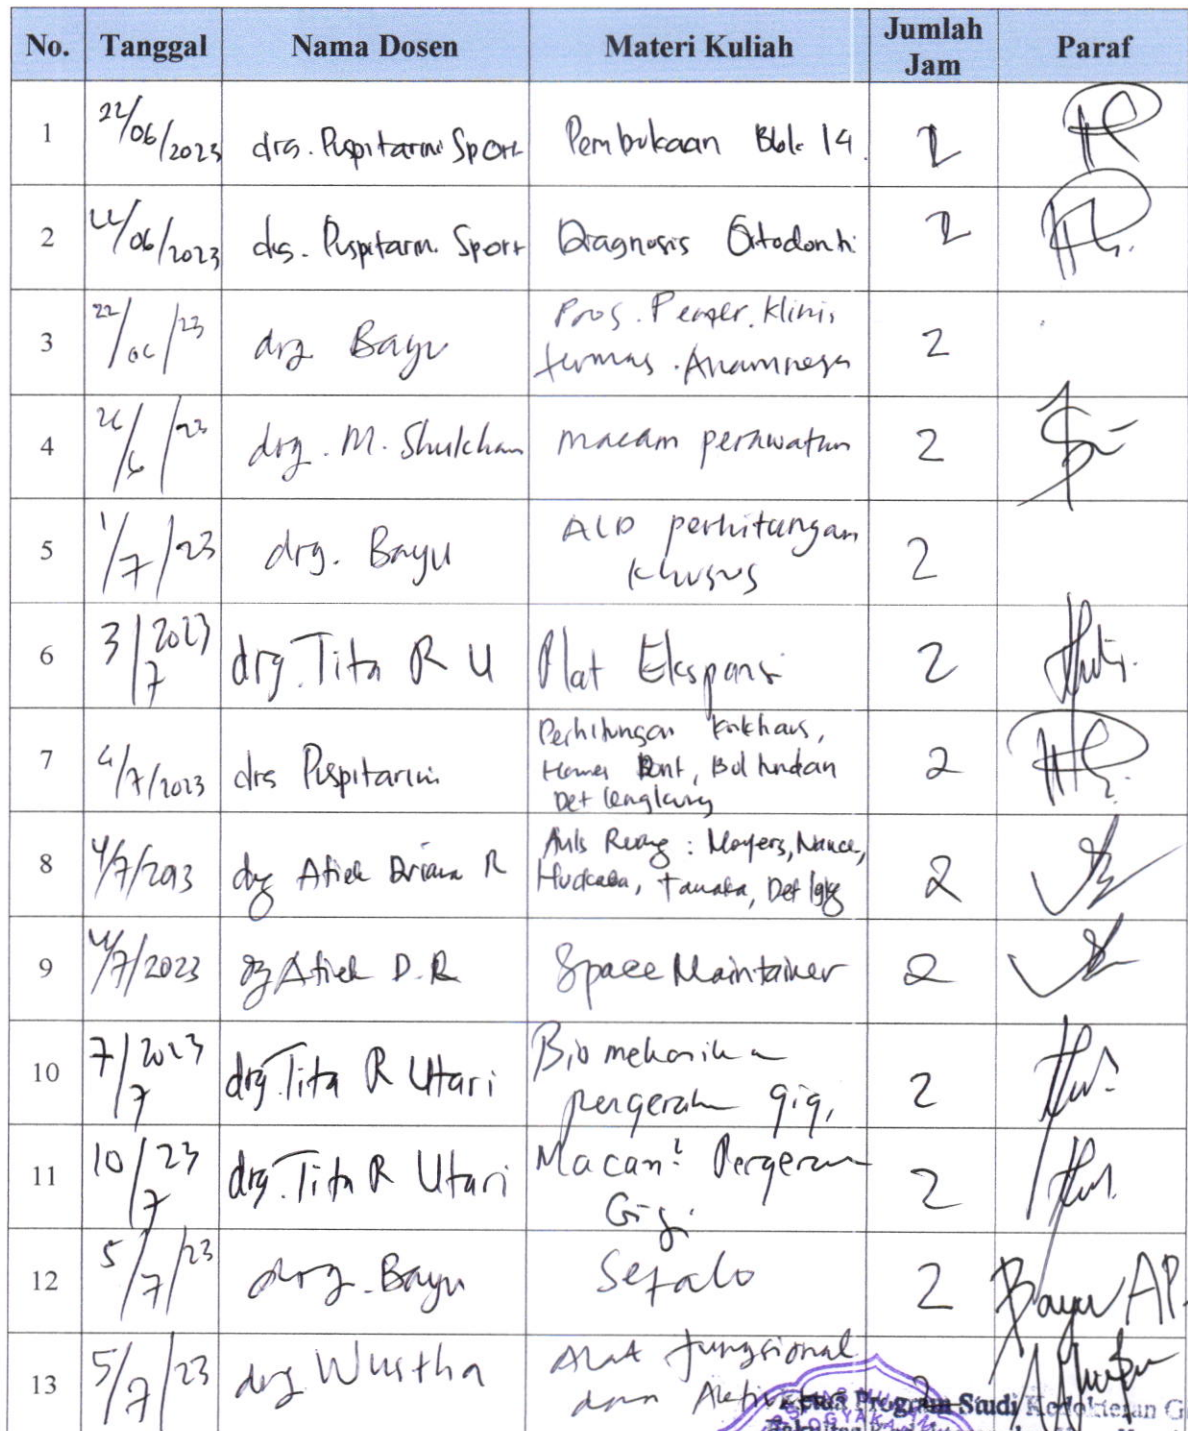 No. Tanggal Nama Dosen Materi Kuliah Jumlah Jam Paraf
1 22/06/2023 drg. Puspitarini Sport Pembukaan Blok 14. 2
2 22/06/2023 drg. Puspitarini Sport Diagnosis Ortodonti 2
3 22/06/23 drg Bayu Pros. Pemer. Klinis
termas . Anamnesa 2
4 26/6/23 drg. M. Shulchan macam perawatan 2
5 1/7/23 drg. Bayu ALD perhitungan
khusus 2
6 3/7/2023 drg. Tita R U Plat Ekspansi 2
7 4/7/2023 drg Puspitarini Perhitungan Korkhaus,
Howes Pont, Bolton dan
Det lengkung 2
8 4/7/2023 drg Atiek Driana R Anls Ruang : Moyers, Nance,
Huckaba, Tanaka, Det lgkg 2
9 4/7/2023 drg Atiek D.R Space Maintainer 2
10 7/7/2023 drg. Tita R Utari Biomekanika
pergerakan gigi 2
11 10/7/23 drg. Tita R Utari Macam² Pergerakan
Gigi 2
12 5/7/23 drg. Bayu Sefalo 2 Bayu AP.
13 5/7/23 drg Wustha Alat fungsional
dan Aktivator 2
Program Studi Kedokteran G